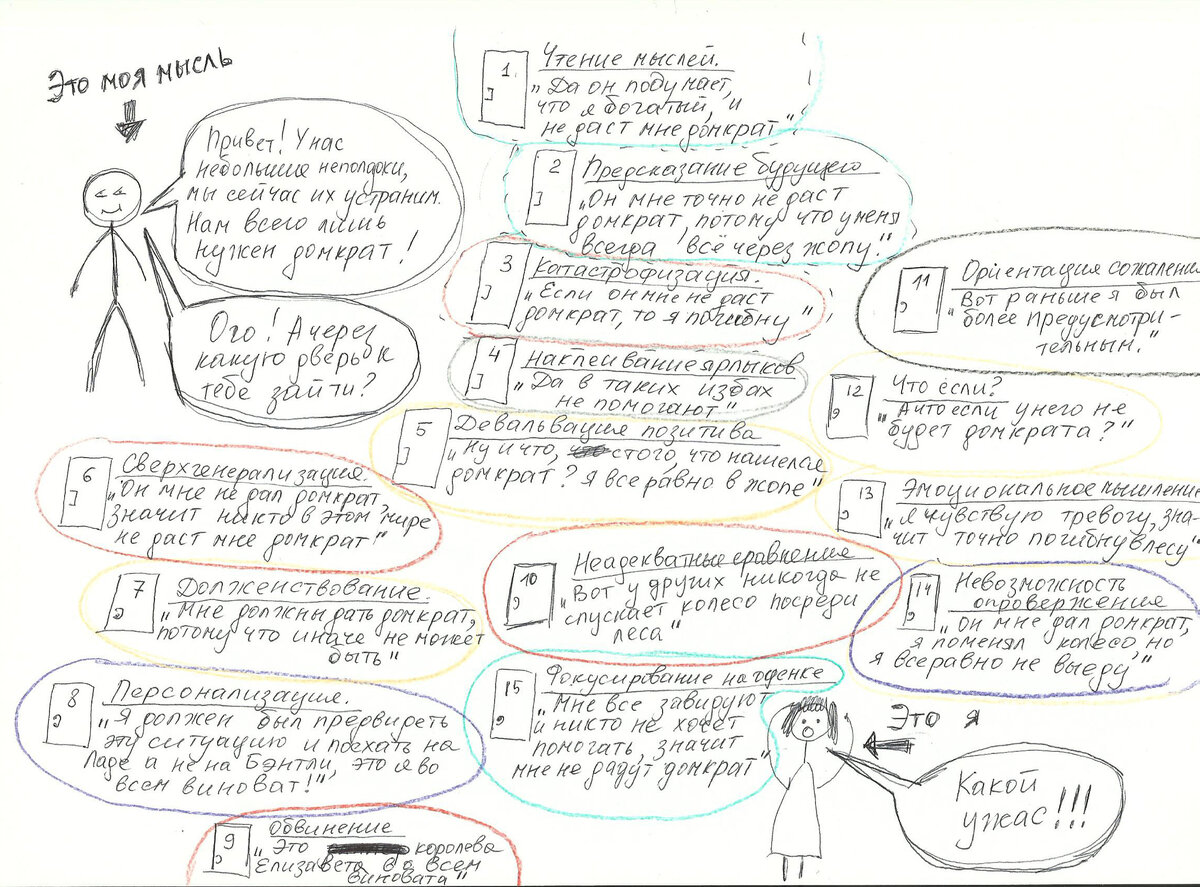 Это моя мысль
Привет! У нас
небольшие неполадки,
мы сейчас их устраним.
Нам всего лишь
нужен домкрат!
Ого! А через
какую дверь к
тебе зайти?
1.
Чтение мыслей.
„Да он подумает,
что я богатый, и
не даст мне домкрат“
2
Предсказание будущего
„Он мне точно не даст
домкрат, потому что у меня
всегда всё через жопу.“
3
Катастрофизация.
„Если он мне не даст
домкрат, то я погибну“
4
Наклеивание ярлыков
„Да в таких избах
не помогают“
5
Девальвация позитива
„Ну и что, с того, что нашелся
домкрат? Я все равно в жопе“
6
Сверхгенерализация.
„Он мне не дал домкрат,
значит никто в этом мире
не даст мне домкрат!“
7
Долженствование.
„Мне должны дать домкрат,
потому что иначе не может
быть“
8
Персонализация.
„Я должен был предвидеть
эту ситуацию и поехать на
Ладе а не на Бэнтли, это я во
всем виноват!“
9
Обвинение
„Это королева
Елизавета во всем
виновата“
10
Неадекватные сравнение
„Вот у других никогда не
спускает колесо посреди
леса“
11
Ориентация сожаления
„Вот раньше я был
более предусмотри-
тельным.“
12
Что если?
„А что если у него не
будет домкрата?“
13
Эмоциональное мышление
„Я чувствую тревогу, зна-
чит точно погибну в лесу“
14
Невозможность
опровержения
„Он мне дал домкрат,
я поменял колесо, но
я все равно не выеду“
15
Фокусирование на оценке
„Мне все завидуют
и никто не хочет
помогать, значит
мне не дадут домкрат“
Это я
Какой
ужас!!!